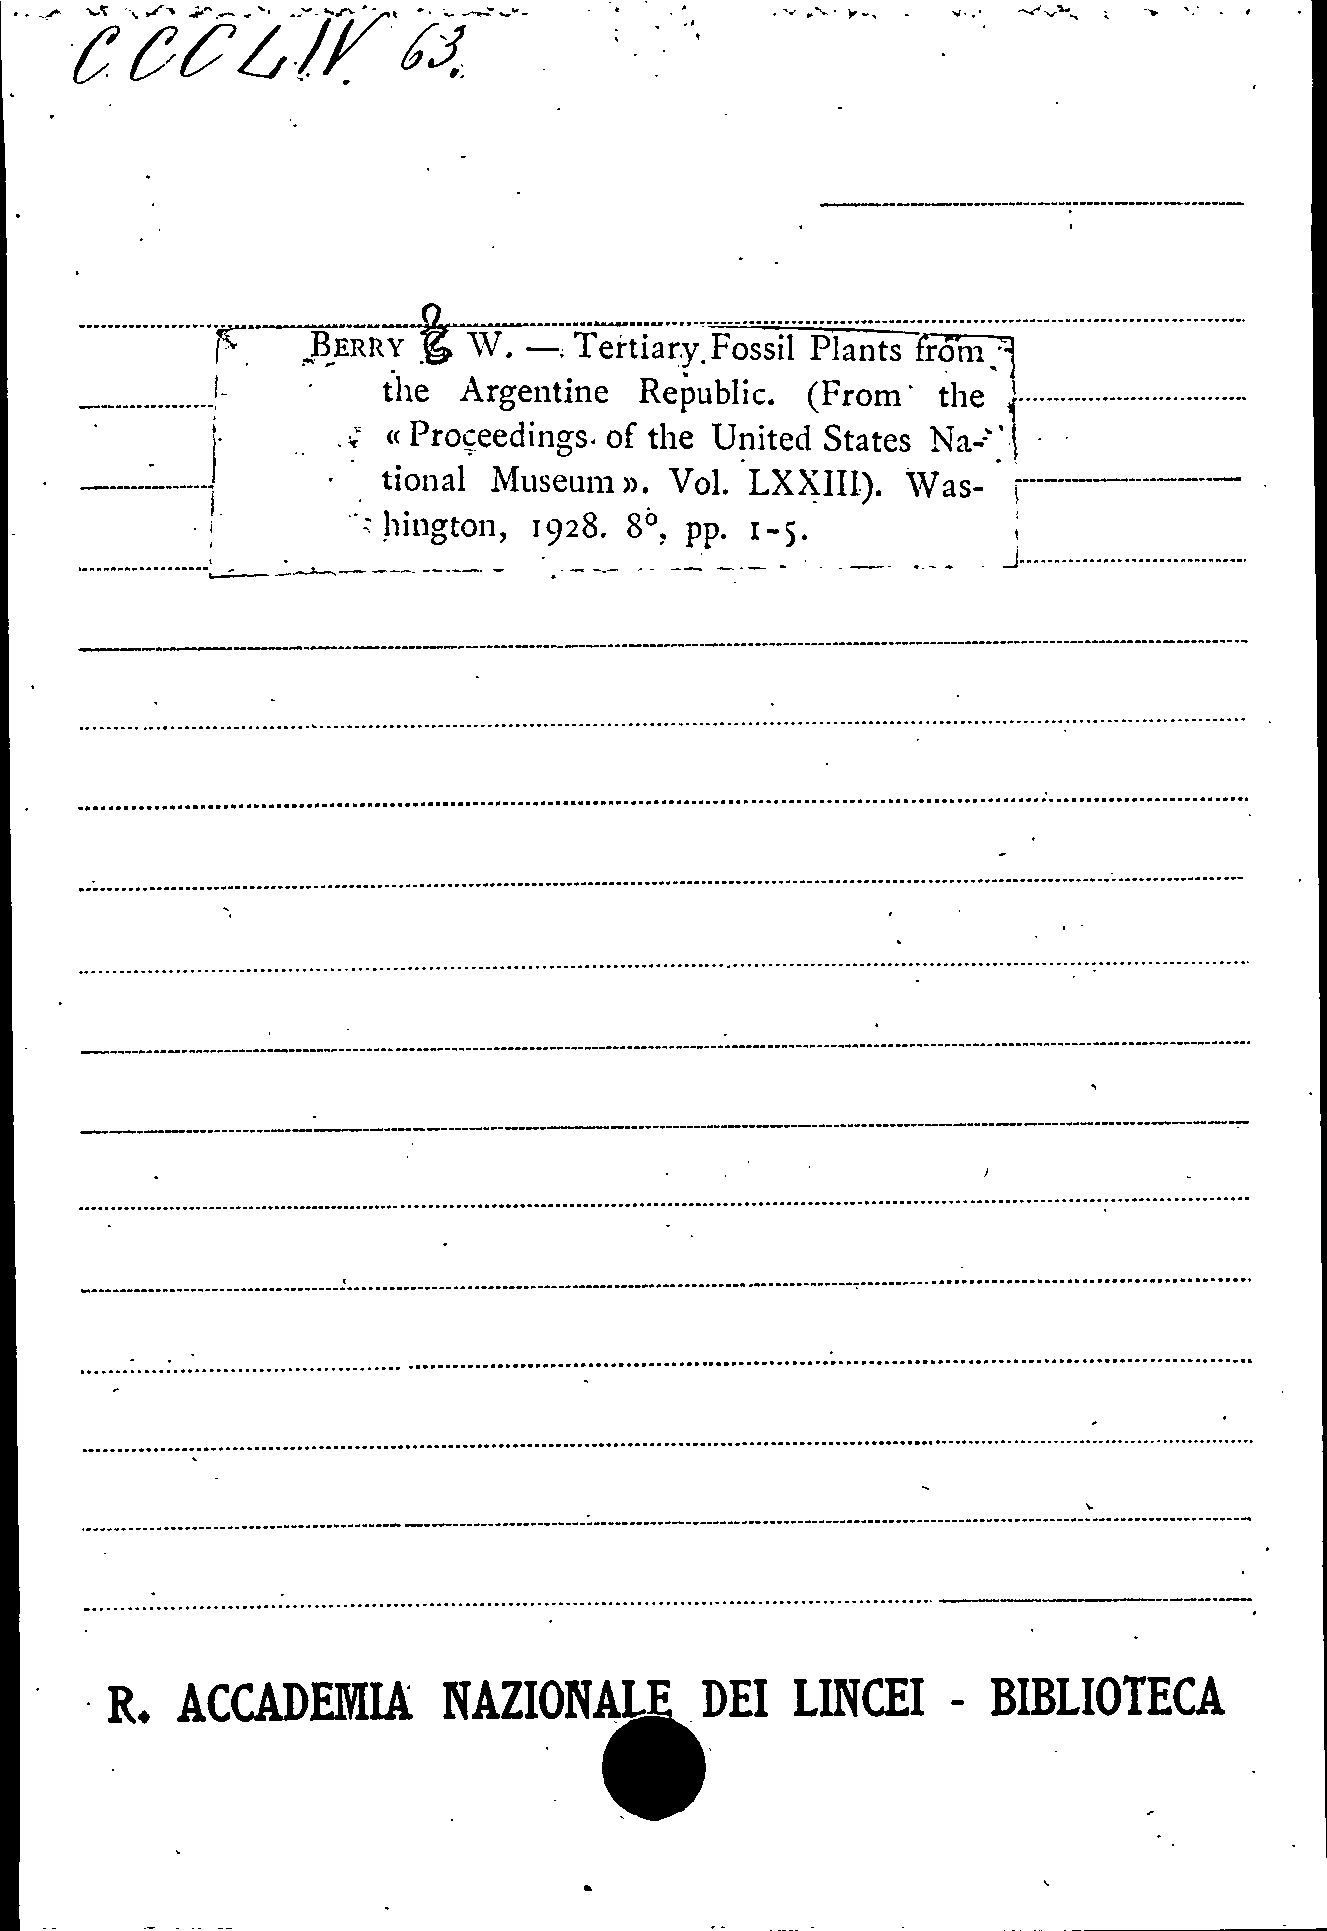 CCCLIV. 63.
BERRY E. W. — Tertiary Fossil Plants from
the Argentine Republic. (From the
« Proceedings of the United States Na-
tional Museum ». Vol. LXXIII). Was-
hington, 1928. 8°, pp. 1-5.
R. ACCADEMIA NAZIONALE DEI LINCEI - BIBLIOTECA